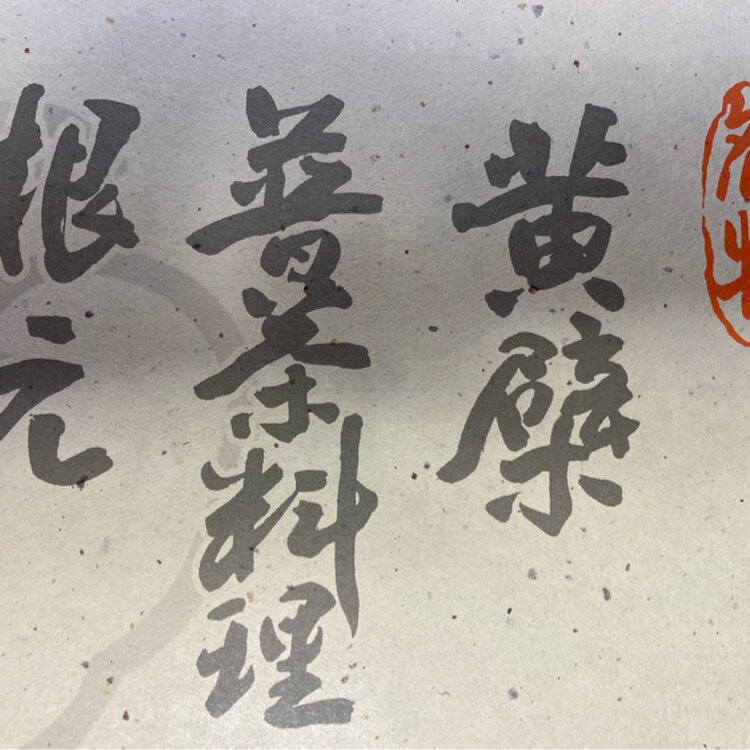 黄檗
普茶料理
根元